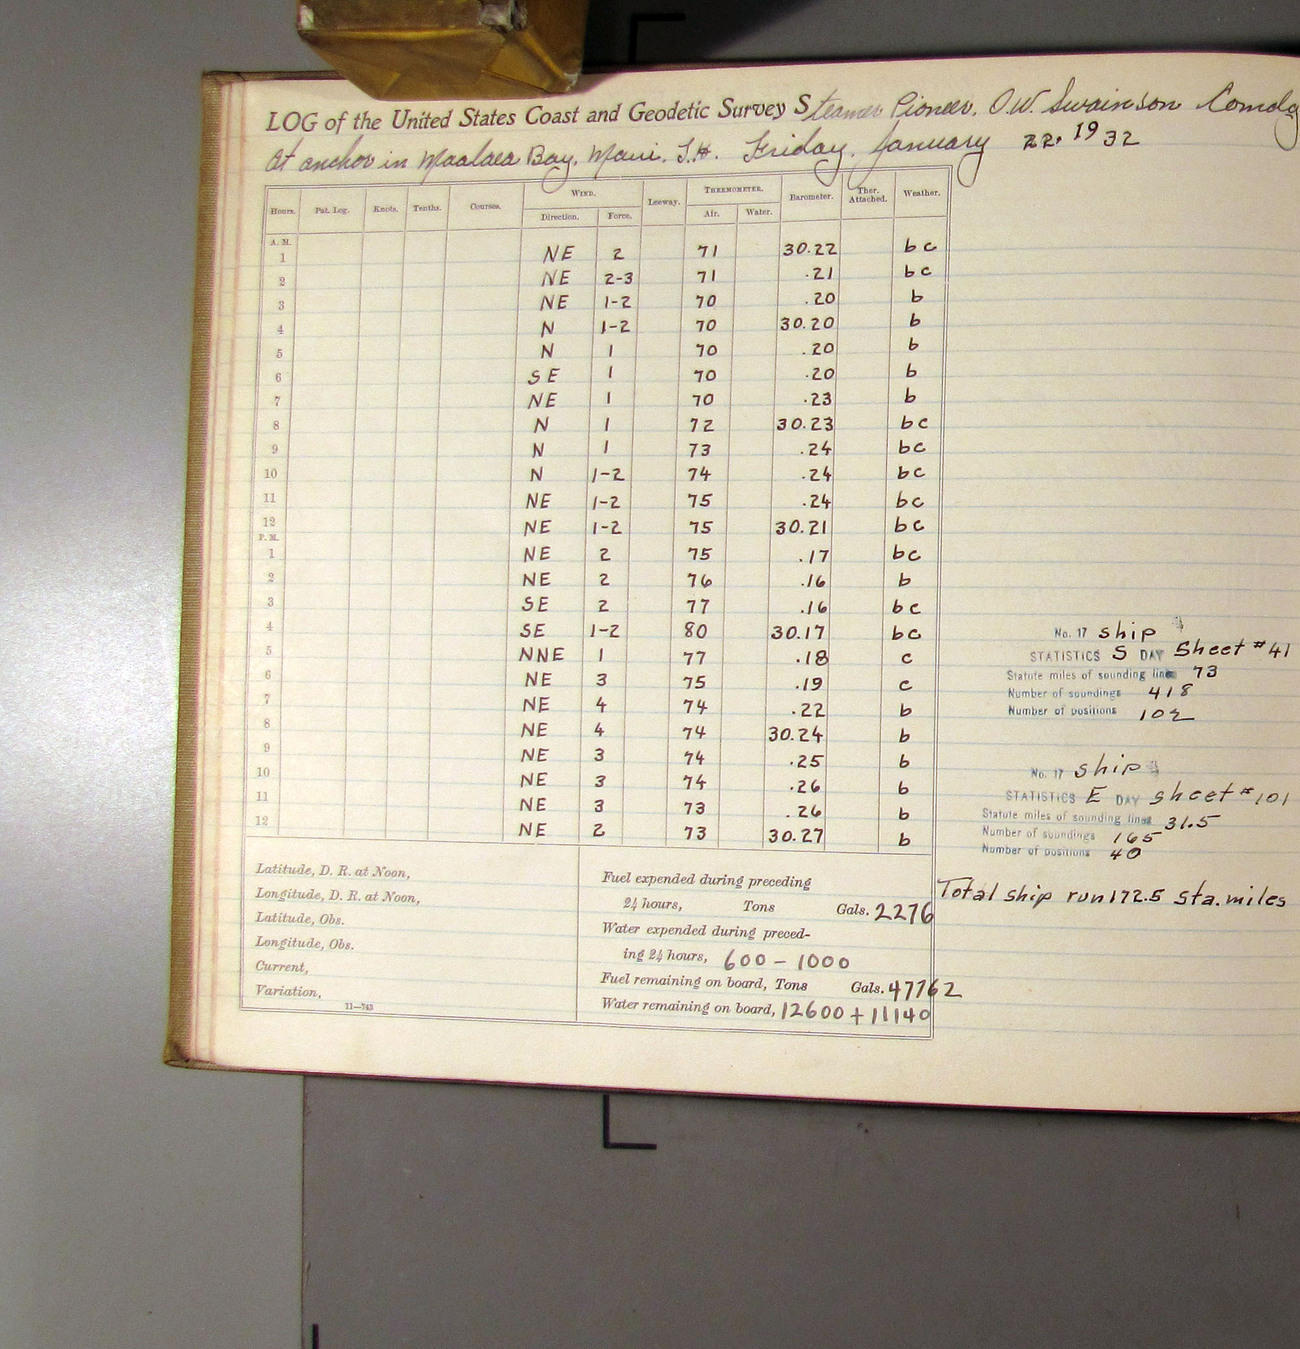 LOG of the United States Coast and Geodetic Survey Steamer Pioneer, O.W. Swainson Comdg
At anchor in Maalaea Bay, Maui, T.H. Friday, January 22, 1932
Hours. Pat. Log. Knots. Tenths. Courses. WIND. Leeway. THERMOMETER. Barometer. Ther. Attached. Weather.
Direction. Force. Air. Water.
A. M.
1 NE 2 71 30.22 bc
2 NE 2-3 71 .21 bc
3 NE 1-2 70 .20 b
4 N 1-2 70 30.20 b
5 N 1 70 .20 b
6 SE 1 70 .20 b
7 NE 1 70 .23 b
8 N 1 72 30.23 bc
9 N 1 73 .24 bc
10 N 1-2 74 .24 bc
11 NE 1-2 75 .24 bc
12 NE 1-2 75 30.21 bc
P. M.
1 NE 2 75 .17 bc
2 NE 2 76 .16 b
3 SE 2 77 .16 bc
4 SE 1-2 80 30.17 bc
5 NNE 1 77 .18 c
6 NE 3 75 .19 c
7 NE 4 74 .22 b
8 NE 4 74 30.24 b
9 NE 3 74 .25 b
10 NE 3 74 .26 b
11 NE 3 73 .26 b
12 NE 2 73 30.27 b
No. 17 ship
STATISTICS S DAY Sheet #41
Statute miles of sounding line 73
Number of soundings 418
Number of positions 102
No. 17 ship
STATISTICS E DAY sheet #101
Statute miles of sounding lines 31.5
Number of soundings 165
Number of positions 40
Total ship run 172.5 sta. miles
Latitude, D. R. at Noon,
Longitude, D. R. at Noon,
Latitude, Obs.
Longitude, Obs.
Current,
Variation,
11—743
Fuel expended during preceding
24 hours, Tons Gals. 2276
Water expended during preced-
ing 24 hours, 600 - 1000
Fuel remaining on board, Tons Gals. 47762
Water remaining on board, 12600 + 11140